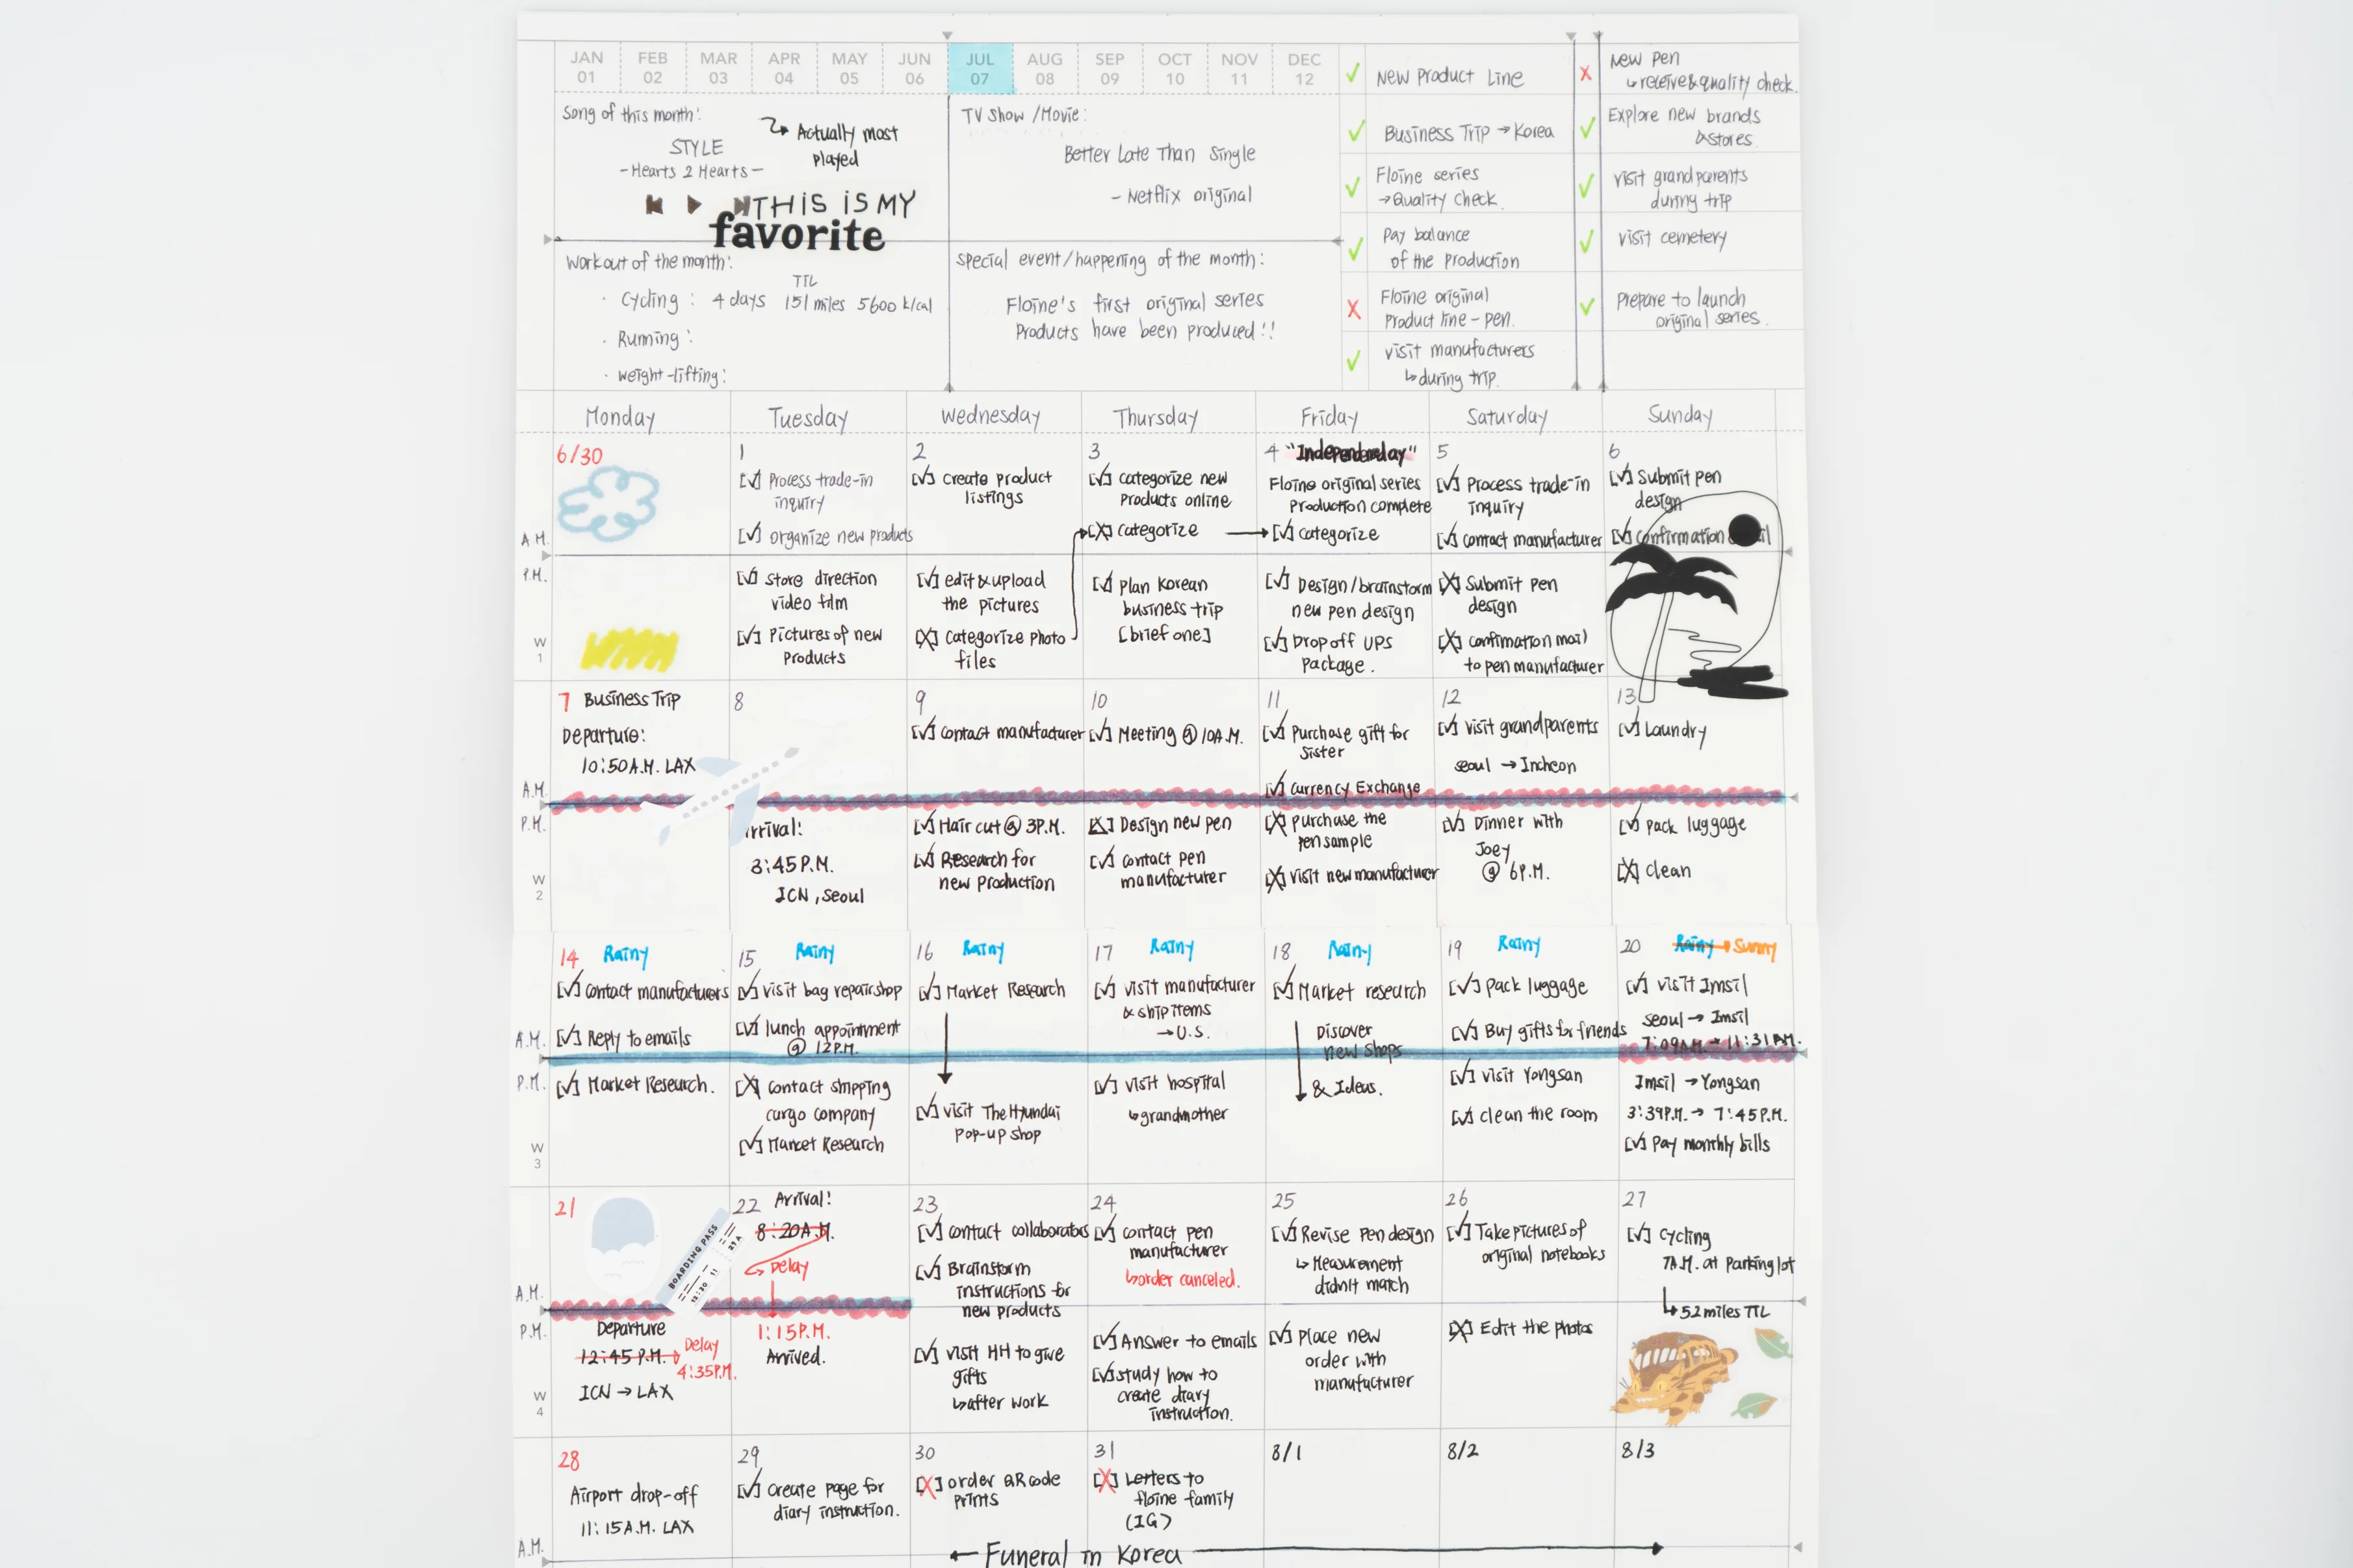 JAN FEB MAR APR MAY JUN JUL AUG SEP OCT NOV DEC
01 02 03 04 05 06 07 08 09 10 11 12
Song of this month:
STYLE
-Hearts 2 Hearts-
Actually most
played
THIS IS MY
favorite
TV Show /Movie:
Better Late Than Single
- Netflix original
Workout of the month:
TTL
· Cycling : 4 days 151 miles 5600 k/cal
· Running :
· Weight-lifting:
Special event/happening of the month:
Floine's first original series
Products have been produced!!
✓ New Product Line
✓ Business Trip → Korea
✓ Floine series
→ Quality Check.
✓ Pay balance
of the production
X Floine original
Product line - pen.
✓ Visit manufacturers
↳ during trip.
X New pen
↳ receive & quality check.
✓ Explore new brands
& stores.
✓ Visit grandparents
during trip
✓ Visit cemetery
✓ Prepare to launch
original series.
Monday Tuesday Wednesday Thursday Friday Saturday Sunday
A.M.
P.M.
W
1
6/30
1
[✓] Process trade-in
inquiry
[✓] organize new products
[✓] Store direction
video film
[✓] Pictures of new
Products
2
[✓] Create product
listings
[✓] edit & upload
the pictures
[X] Categorize photo
files
3
[✓] Categorize new
Products online
[X] Categorize →
[✓] Plan Korean
business trip
[brief one]
4 "Independenday"
Floine original series
Production complete
[✓] Categorize
[✓] Design/brainstorm
new pen design
[✓] Drop off UPS
Package.
5
[✓] Process trade-in
inquiry
[✓] Contact manufacturer
[X] Submit pen
design
[X] Confirmation mail
to pen manufacturer
6
[✓] Submit pen
design
[✓] Confirmation
A.M.
P.M.
W
2
7 Business Trip
Departure:
10:50 A.M. LAX
8
rrival:
3:45 P.M.
ICN, Seoul
9
[✓] Contact manufacturer
[✓] Hair cut @ 3P.M.
[✓] Research for
new Production
10
[✓] Meeting @ 10A.M.
[X] Design new pen
[✓] Contact pen
manufacturer
11
[✓] Purchase gift for
Sister
[✓] Currency Exchange
[X] Purchase the
pen sample
[X] Visit new manufacturer
12
[✓] Visit grandparents
Seoul → Incheon
[✓] Dinner with
Joey
@ 6P.M.
13
[✓] Laundry
[✓] Pack luggage
[X] Clean
A.M.
P.M.
W
3
14 Rainy
[✓] Contact manufacturers
[✓] Reply to emails
[✓] Market Research.
15 Rainy
[✓] Visit bag repair shop
[✓] lunch appointment
@ 12P.M.
[X] Contact shipping
cargo company
[✓] Market Research
16 Rainy
[✓] Market Research
[✓] Visit The Hyundai
Pop-up shop
17 Rainy
[✓] Visit manufacturer
& ship items
→ U.S.
[✓] Visit hospital
↳ grandmother
18 Rainy
[✓] Market research
Discover
new shops
& Ideas.
19 Rainy
[✓] Pack luggage
[✓] Buy gifts for friends
[✓] Visit Yongsan
[✓] Clean the room
20 Rainy → Sunny
[✓] Visit Imsil
Seoul → Imsil
7:09A.M. → 11:31A.M.
Imsil → Yongsan
3:39P.M. → 7:45P.M.
[✓] Pay monthly bills
A.M.
P.M.
W
4
21
BOARDING PASS
Departure
12:45 P.M. → Delay
4:35P.M.
ICN → LAX
22 Arrival:
8:20A.M.
Delay
1:15P.M.
Arrived.
23
[✓] Contact collaborators
[✓] Brainstorm
instructions for
new products
[✓] Visit HH to give
gifts
↳ after work
24
[✓] Contact pen
manufacturer
↳ order canceled.
[✓] Answer to emails
[✓] Study how to
create diary
instruction.
25
[✓] Revise Pen design
↳ Measurement
didn't match
[✓] Place new
order with
manufacturer
26
[✓] Take pictures of
original notebooks
[X] Edit the photos
27
[✓] Cycling
7A.M. at Parking lot
↳ 52 miles TTL
A.M.
28
Airport drop-off
11:15A.M. LAX
29
[✓] Create page for
diary instruction.
30
[X] order QR code
Prints
31
[X] Letters to
floine family
(IG)
8/1
8/2
8/3
← Funeral in Korea →